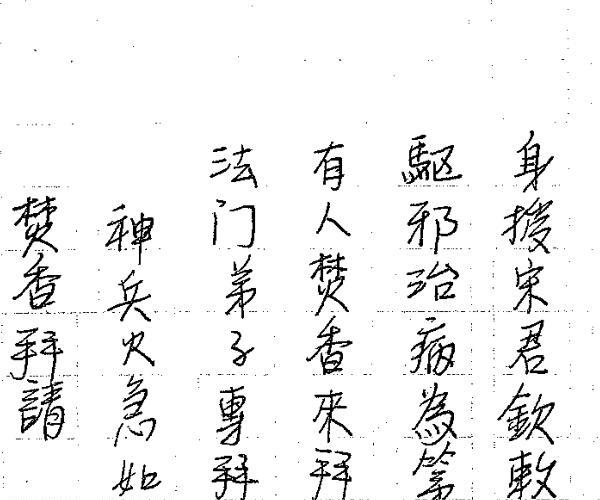 身授宋君欽敕
駆邪治病為第
有人焚香來拜
法门弟子專拜
神兵火急如
焚香拜請